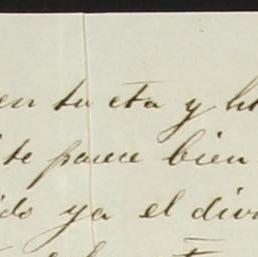 en tu cta y h
te parece bien
ido ya el div